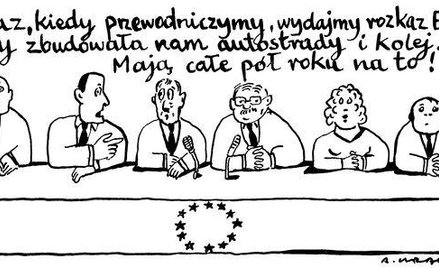 az, kiedy przewodniczymy, wydajmy rozkaz
y zbudowała nam autostrady i kolej.
Mają całe pół roku na to!